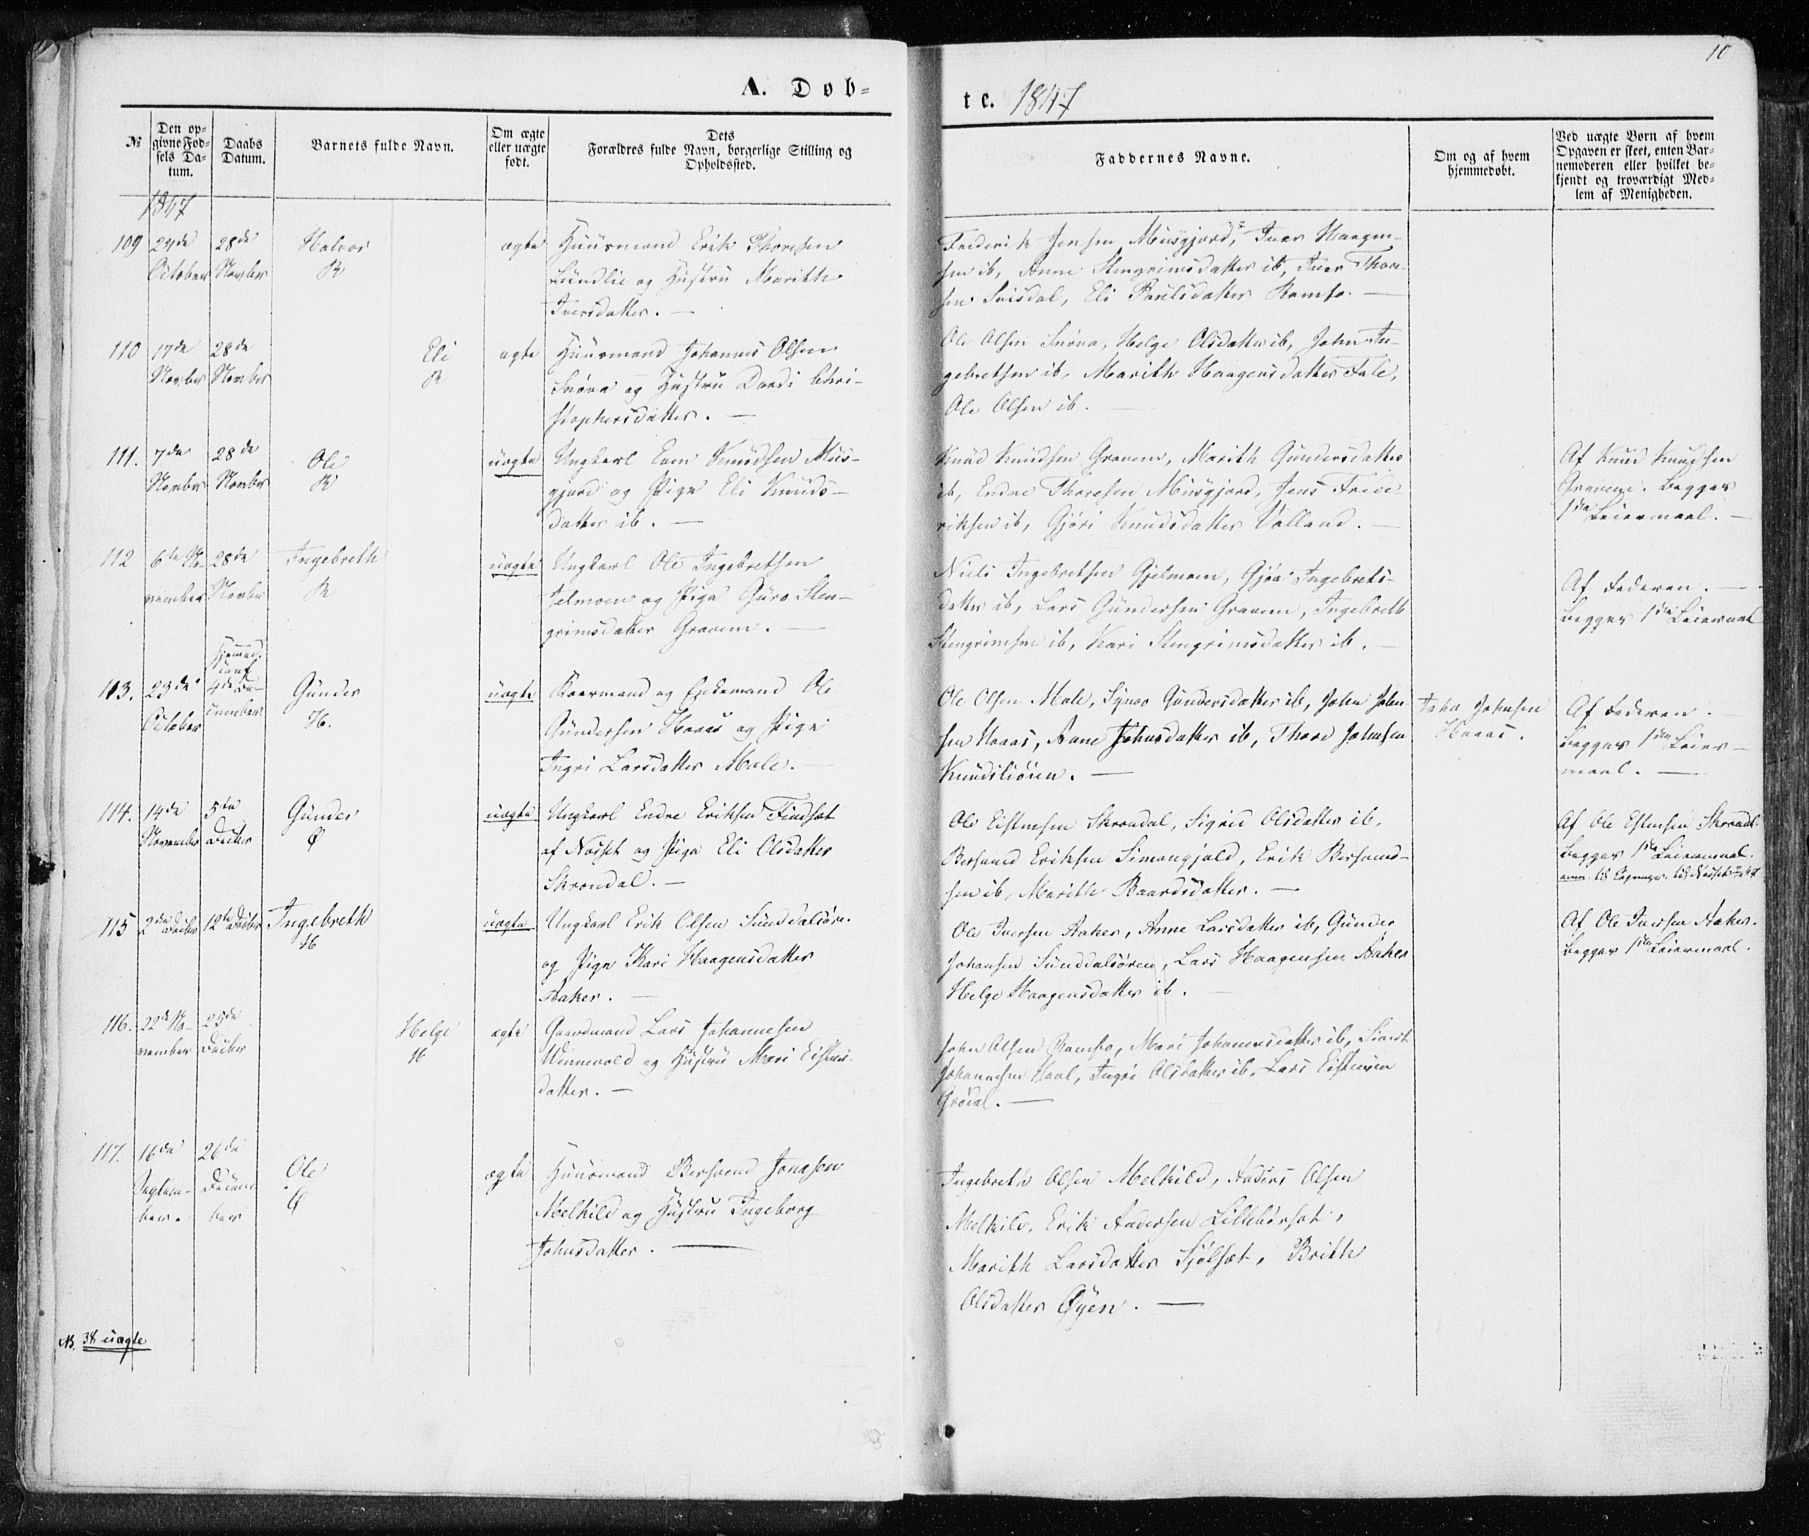 10
A. Døb-
te. 1847
№
Den op-
givne Fød-
sels Da-
tum.
Daabs
Datum.
Barnets fulde Navn.
Om ægte
eller uægte
født.
Dets
Forældres fulde Navn, borgerlige Stilling og
Opholdssted.
Faddernes Navne.
Om og af hvem
hjemmedøbt.
Ved uægte Børn af hvem
Opgaven er skeet, enten Bar-
nemoderen eller hvilket be-
kjendt og troværdigt Med-
lem af Menigheden.
1847
109 24de October
28de Novbr
Halvor
R
ægte
Huusmand Erik Thoresen
Lundlie og Hustru Marith
Iversdatter. —
Frederik Jensen Musgjerd, Iver Haagen-
sen ib, Anne Stengrimsdatter ib, Iver Thore-
sen Svisdal, Eli Paulsdatter Romfo. —
110 17de Novbr
28de Novbr
Eli
R
ægte
Huusmand Johannes Olsen
Snøva og Hustru Dordi Chri-
stophersdatter. —
Ole Olsen Snøva, Helge Olsdatter ib, John In-
gebretsen ib, Marith Haagensdatter Fale,
Ole Olsen ib. —
111. 7de Novbr
28de Novbr
Ole
R
uægte
Ungkarl Even Knudsen Mus-
gjerd og Pige Eli Knuds-
datter ib. —
Knud Knudsen Gravem, Marith Gundersdatter
ib, Endre Thoresen Musgjerd, Jens Frede
riksen ib, Gjøri Knudsdatter Volland. —
Af Knud Knudsen
Gravem. Begges
1ste Leiermaal. —
112 6te No-
vember
28de Novbr
Ingebreth
R
uægte
Ungkarl Ole Ingebretsen
Jelmoen og Pige Guro Sten-
grimsdatter Gravem. —
Niels Ingebretsen Gjelmoen, Gjøa Ingebrets-
datter ib, Lars Gundersen Gravem, Ingebreth
Stengrimsen ib, Kari Stengrimsdatter ib. —
Af Faderen. —
Begges 1ste Leiermaal
113. 23de October
Hjemmed.
4de De-
cember
Gunder
H.
uægte
Kaarmand og Enkemand Ole
Gundersen Hoaas og Pige
Ingri Larsdatter Mæle. —
Ole Olsen Mæle, Synøv Gundersdatter ib, John John-
sen Hoaas, Anne Johnsdatter ib, Thore Johnsen
Knudsliøren. —
John Johnsen
Hoaas.
Af Faderen. —
Begges 1ste Leier-
maal. —
114. 14de November
5te Decbr
Gunder
Ø
uægte
Ungkarl Endre Eriksen Findset
af Nesset og Pige Eli Olsdatter
Skrondal. —
Ole Estensen Skrondal, Sigrid Olsdatter ib,
Bersvend Eriksen Simongjald, Erik Bersvend-
sen ib, Marith Baardsdatter. —
Af Ole Estensen Skrondal.
Begges 1ste Leiermaal.
115 2den Decbr
12te Decbr
Ingebreth
H
uægte
Ungkarl Erik Olsen Sunddalsør.
og Pige Kari Haagensdatter
Aaker. —
Ole Iversen Aaker, Anne Larsdatter ib, Gunder
Johansen Sunddalsøren, Lars Haagensen Aaker
Helge Haagensdatter ib. —
Af Ole Iversen Aaker.
Begges 1ste Leiermaal.
116. 22de No-
vember
25de Decbr
Helge
H
ægte
Gaardmand Lars Johannesen
Winnevold og Hustru Mari Estens-
datter. —
John Olsen Romfo, Mari Johannesdatter ib, Sivert
Johannesen Hoel, Ingri Olsdatter ib, Lars Estensen
Grødal. —
117. 16de
Septem-
ber.
26de
Decem-
ber
Ole
Ø
ægte
Huusmand Bersvend Jonasen
Melkild og Hustru Ingeborg
Johnsdatter. —
Ingebreth Olsen Melkild, Anders Olsen
Melkild, Erik Andersen Lillebørset,
Marith Larsdatter Sjølset, Brith
Olsdatter Øyen. —
NB. 38 uægte